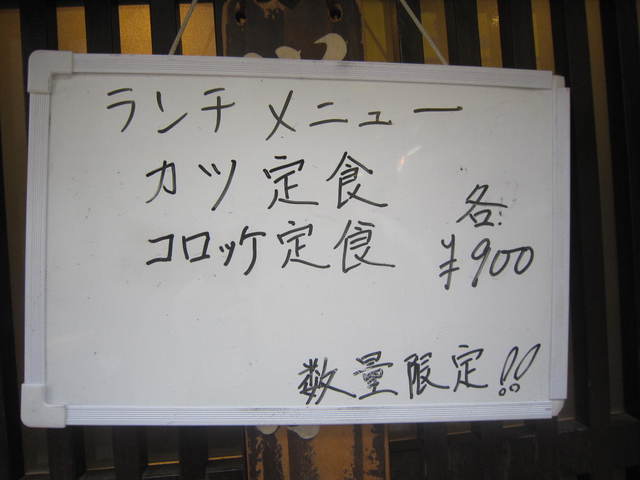 ランチメニュー
カツ定食
コロッケ定食
各:
¥900
数量限定!!